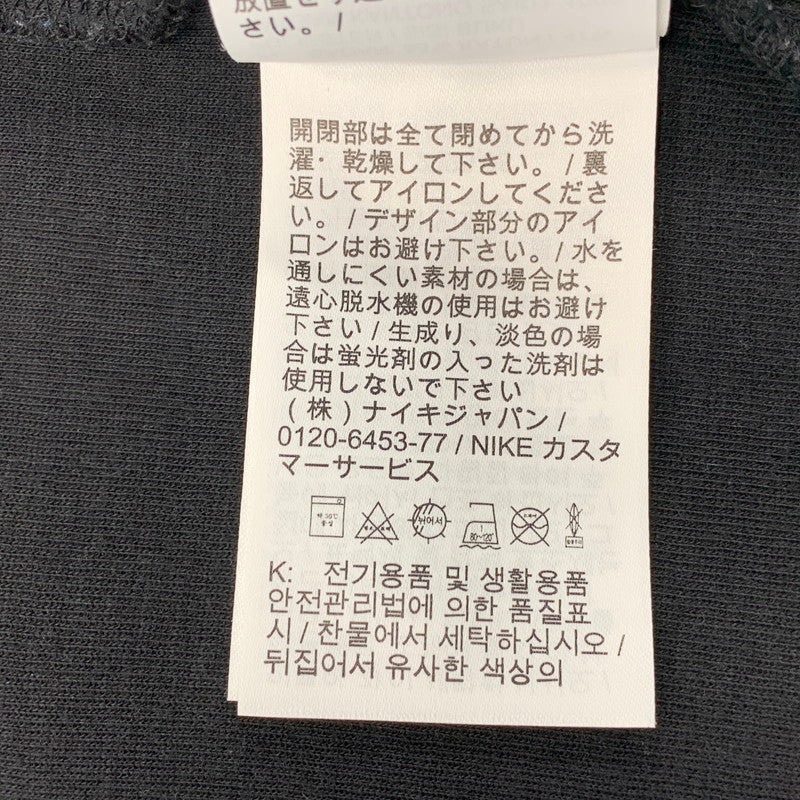 さい。/
開閉部は全て閉めてから洗
濯・乾燥して下さい。/ 裏
返してアイロンしてくださ
い。/ デザイン部分のアイ
ロンはお避け下さい。/ 水を
通しにくい素材の場合は、
遠心脱水機の使用はお避け
下さい / 生成り、淡色の場
合は蛍光剤の入った洗剤は
使用しないで下さい
(株) ナイキジャパン /
0120-6453-77 / NIKE カスタ
マーサービス
약 30℃
중성
뒤어서
80~120℃
K: 전기용품 및 생활용품
안전관리법에 의한 품질표
시 / 찬물에서 세탁하십시오 /
뒤집어서 유사한 색상의